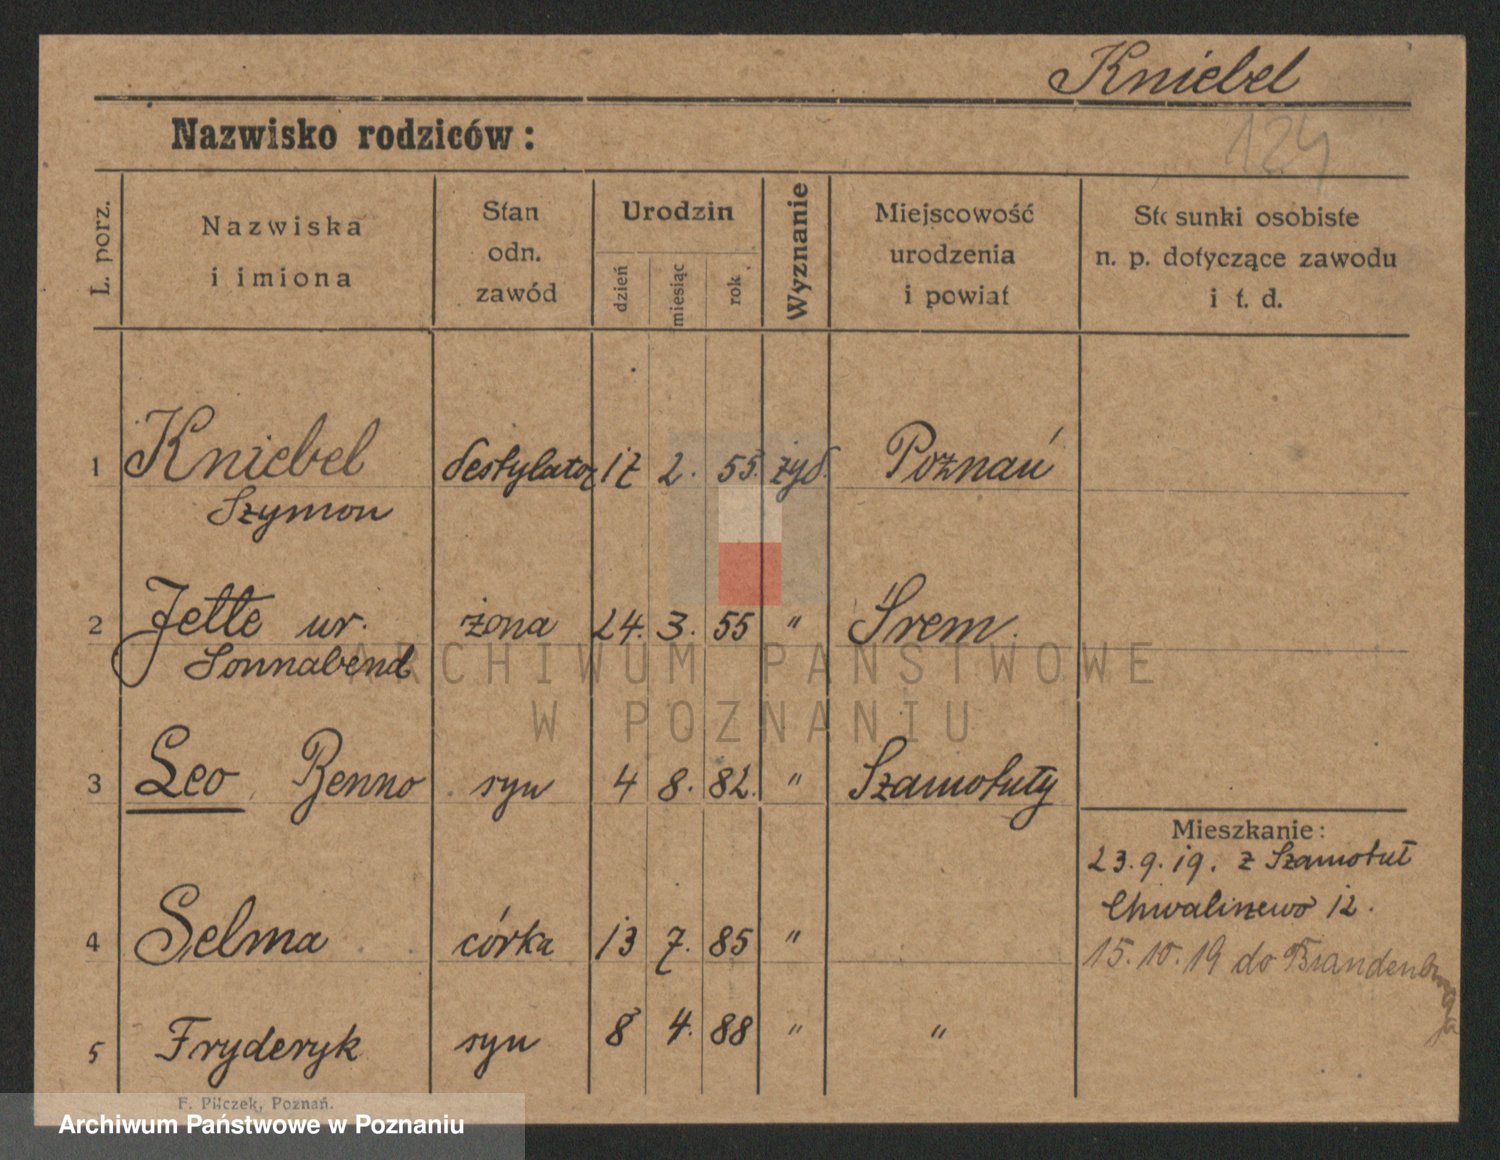 Kniebel
124
Nazwisko rodziców:
L. porz.
Nazwiska
i imiona
Stan
odn.
zawód
Urodzin
dzień
miesiąc
rok
Wyznanie
Miejscowość
urodzenia
i powiat
Stosunki osobiste
n. p. dotyczące zawodu
i t. d.
1 Kniebel destylator 17 2. 55. żyd. Poznań
Szymon
2 Jette ur. żona 24. 3. 55 " Śrem.
Sonnabend
3 Leo Benno syn 4 8. 82. " Szamotuły
Mieszkanie:
23.9.19. z Szamotuł
Chwaliszewo 12.
15.10.19 do Brandenburgja
4 Selma córka 13 7. 85 "
5 Fryderyk syn 8 4. 88 " "
F. Pilczek, Poznań.
ARCHIWUM PAŃSTWOWE
W POZNANIU
Archiwum Państwowe w Poznaniu